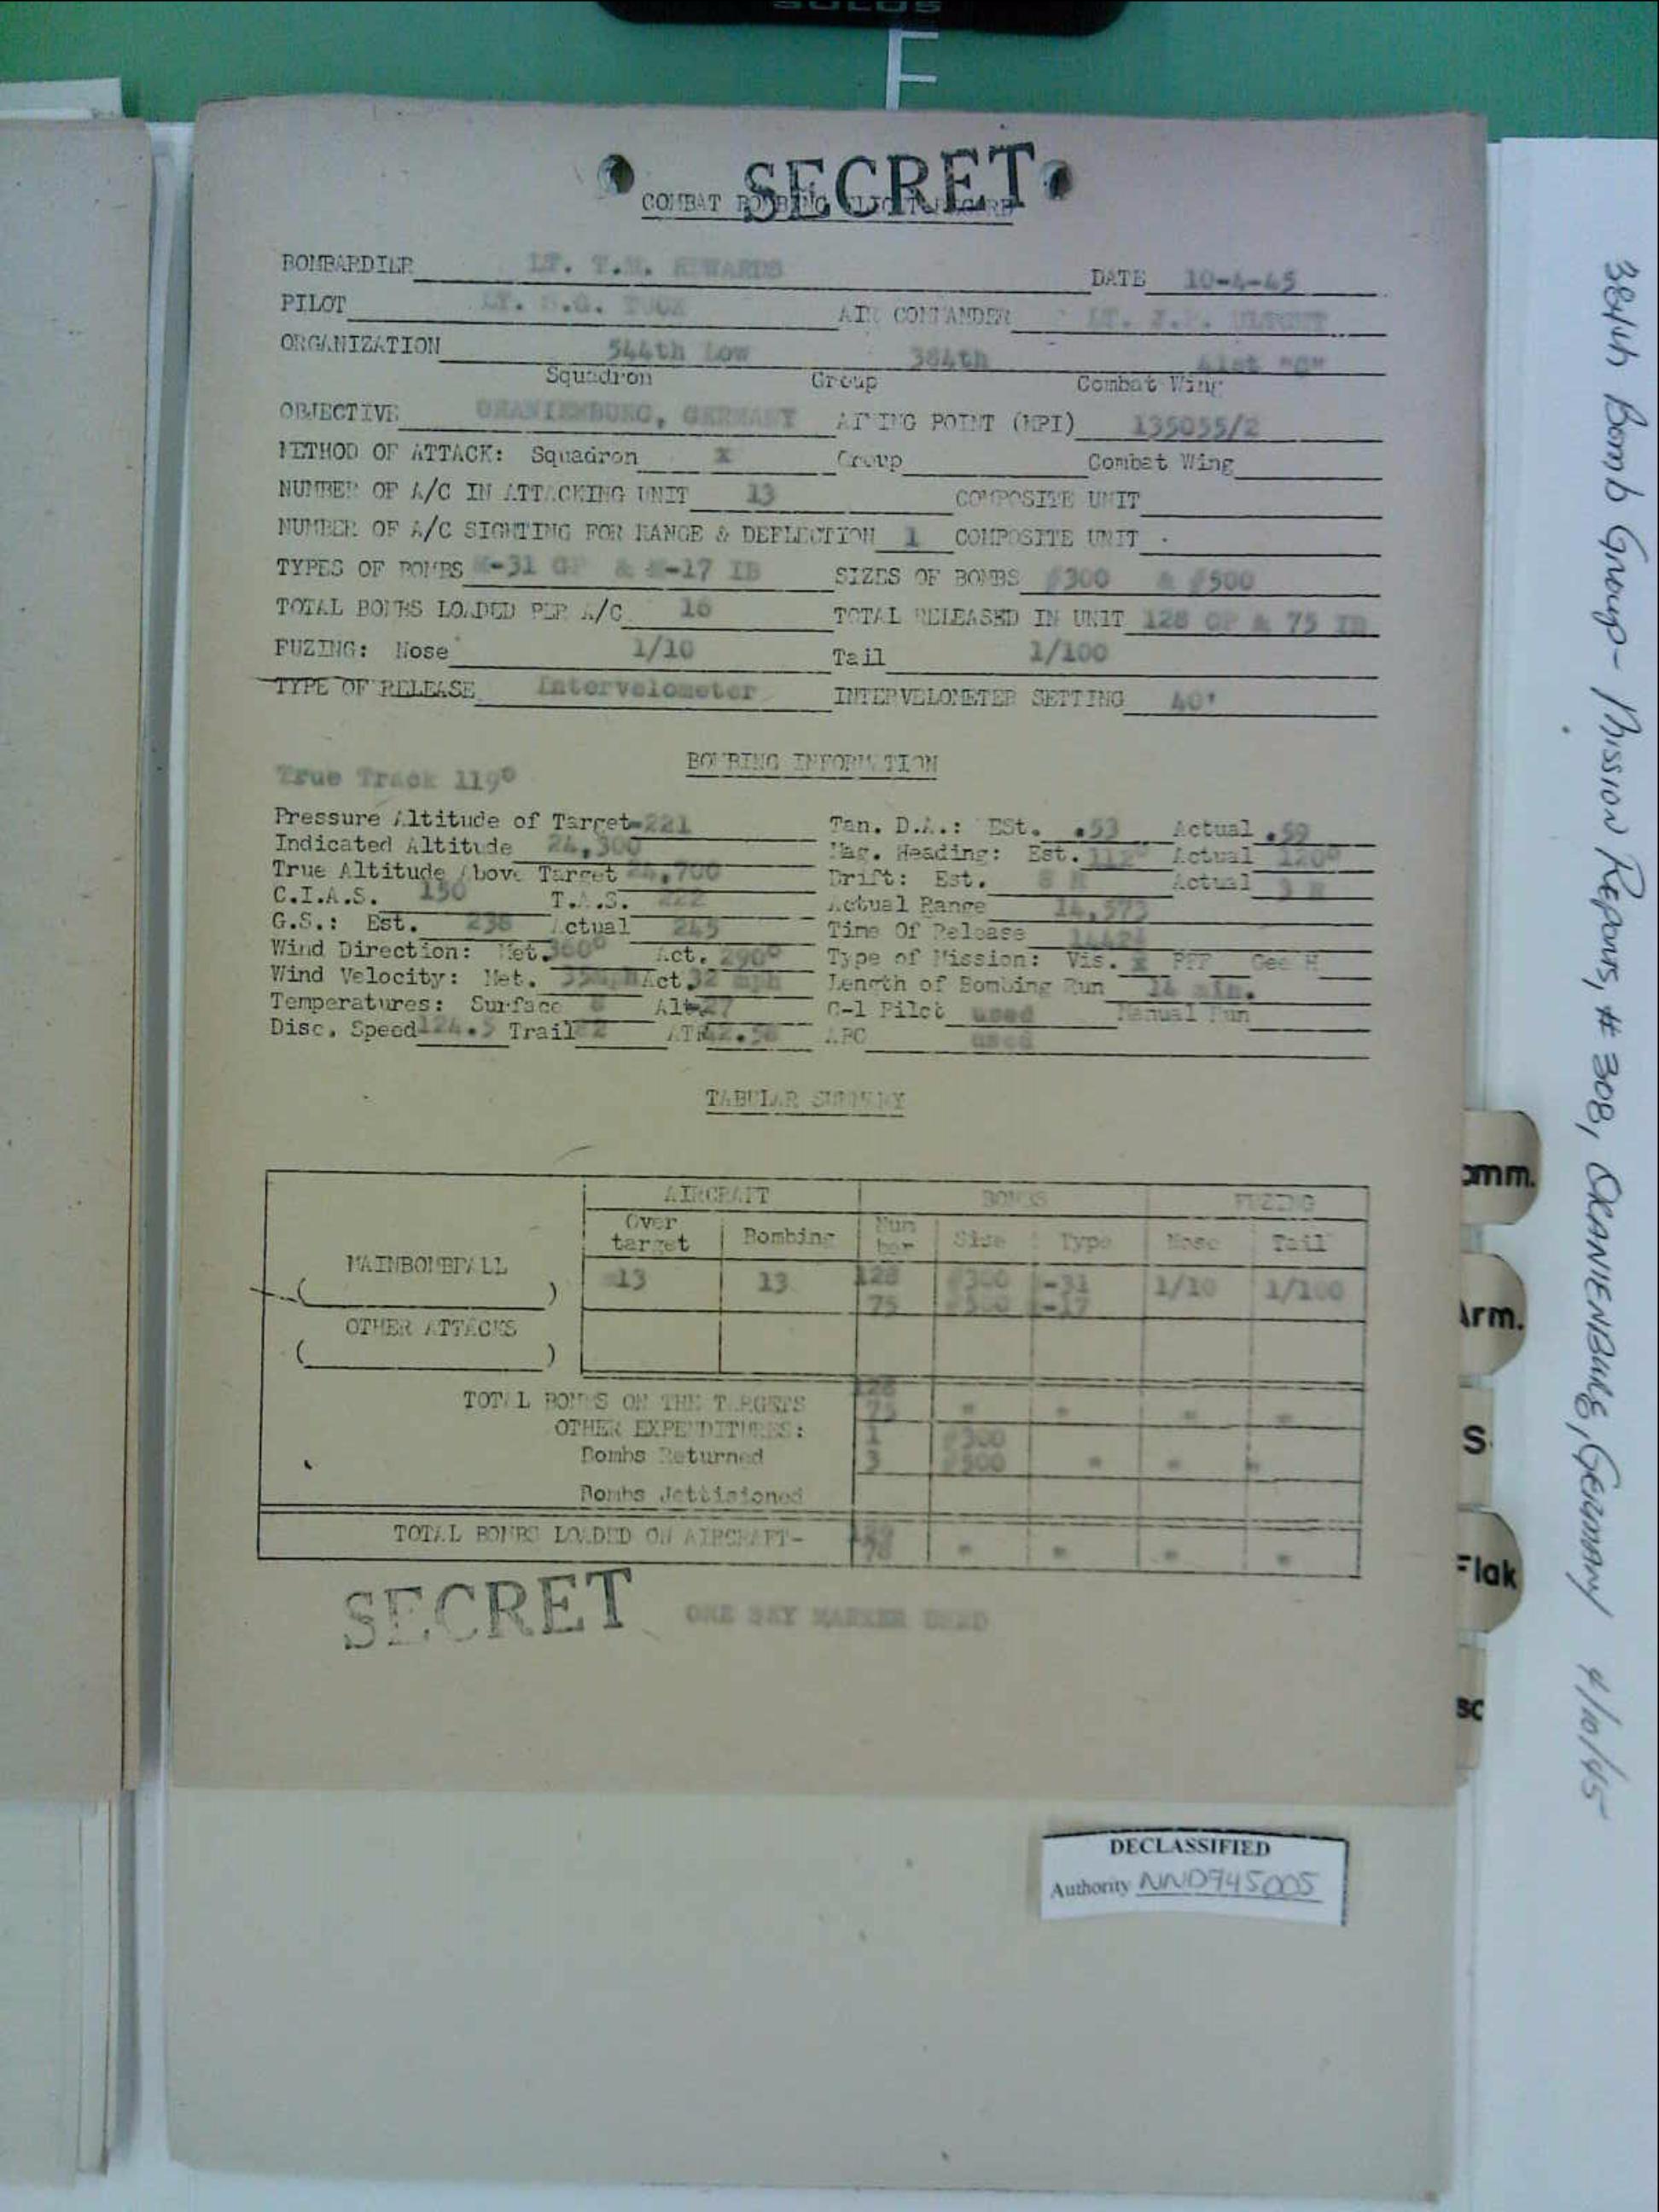 SECRET
COMBAT BOMBING FLIGHT RECORD
BOMBARDIER LT. T.M. EDWARDS DATE 10-4-45
PILOT LT. AIR COMMANDER LT. J.P.
ORGANIZATION 544th Low 384th 41st "C"
Squadron Group Combat Wing
OBJECTIVE ORANIENBURG, GERMANY AIMING POINT (MPI) 135055/2
METHOD OF ATTACK: Squadron X Group Combat Wing
NUMBER OF A/C IN ATTACKING UNIT 13 COMPOSITE UNIT
NUMBER OF A/C SIGHTING FOR RANGE & DEFLECTION 1 COMPOSITE UNIT
TYPES OF BOMBS M-31 GP & M-17 IB SIZES OF BOMBS #300 & #500
TOTAL BOMBS LOADED PER A/C 16 TOTAL RELEASED IN UNIT 128 GP & 75 IB
FUZING: Nose 1/10 Tail 1/100
TYPE OF RELEASE Intervelometer INTERVELOMETER SETTING 40'
BOMBING INFORMATION
True Track 119°
Pressure Altitude of Target -221 Tan. D.A.: Est. .53 Actual .59
Indicated Altitude 24,300 Mag. Heading: Est. 112° Actual 120°
True Altitude Above Target 24,700 Drift: Est. 8 R Actual 3 R
C.I.A.S. 150 T.A.S. 222 Actual Range 14,573
G.S.: Est. 238 Actual 245 Time Of Release
Wind Direction: Met. 360° Act. 290° Type of Mission: Vis. X PFF Gee H
Wind Velocity: Met. 35mph Act. 32 mph Length of Bombing Run 14 min.
Temperatures: Surface 8 Alt -27 C-1 Pilot used Manual Run
Disc. Speed 124.5 Trail 22 ATF 42.56 AFC used
TABULAR SUMMARY
AIRCRAFT BOMBS FUZING
Over target Bombing Num ber Size Type Nose Tail
MAINBOMBFALL
( ) 13 13 128 #300 M-31 1/10 1/100
75 #500 M-17
OTHER ATTACKS
( )
TOTAL BOMBS ON THE TARGETS 128
75 " " " "
OTHER EXPENDITURES: 1 #300
Bombs Returned 3 #500 " " "
Bombs Jettisioned
TOTAL BOMBS LOADED ON AIRCRAFT- 129
78 " " " "
SECRET ONE SKY MARKER USED
DECLASSIFIED
Authority NND745005
384th Bomb Group - Mission Reports, # 308, ORANIENBURG, Germany 4/10/45
omm.
Arm.
S
Flak
sc